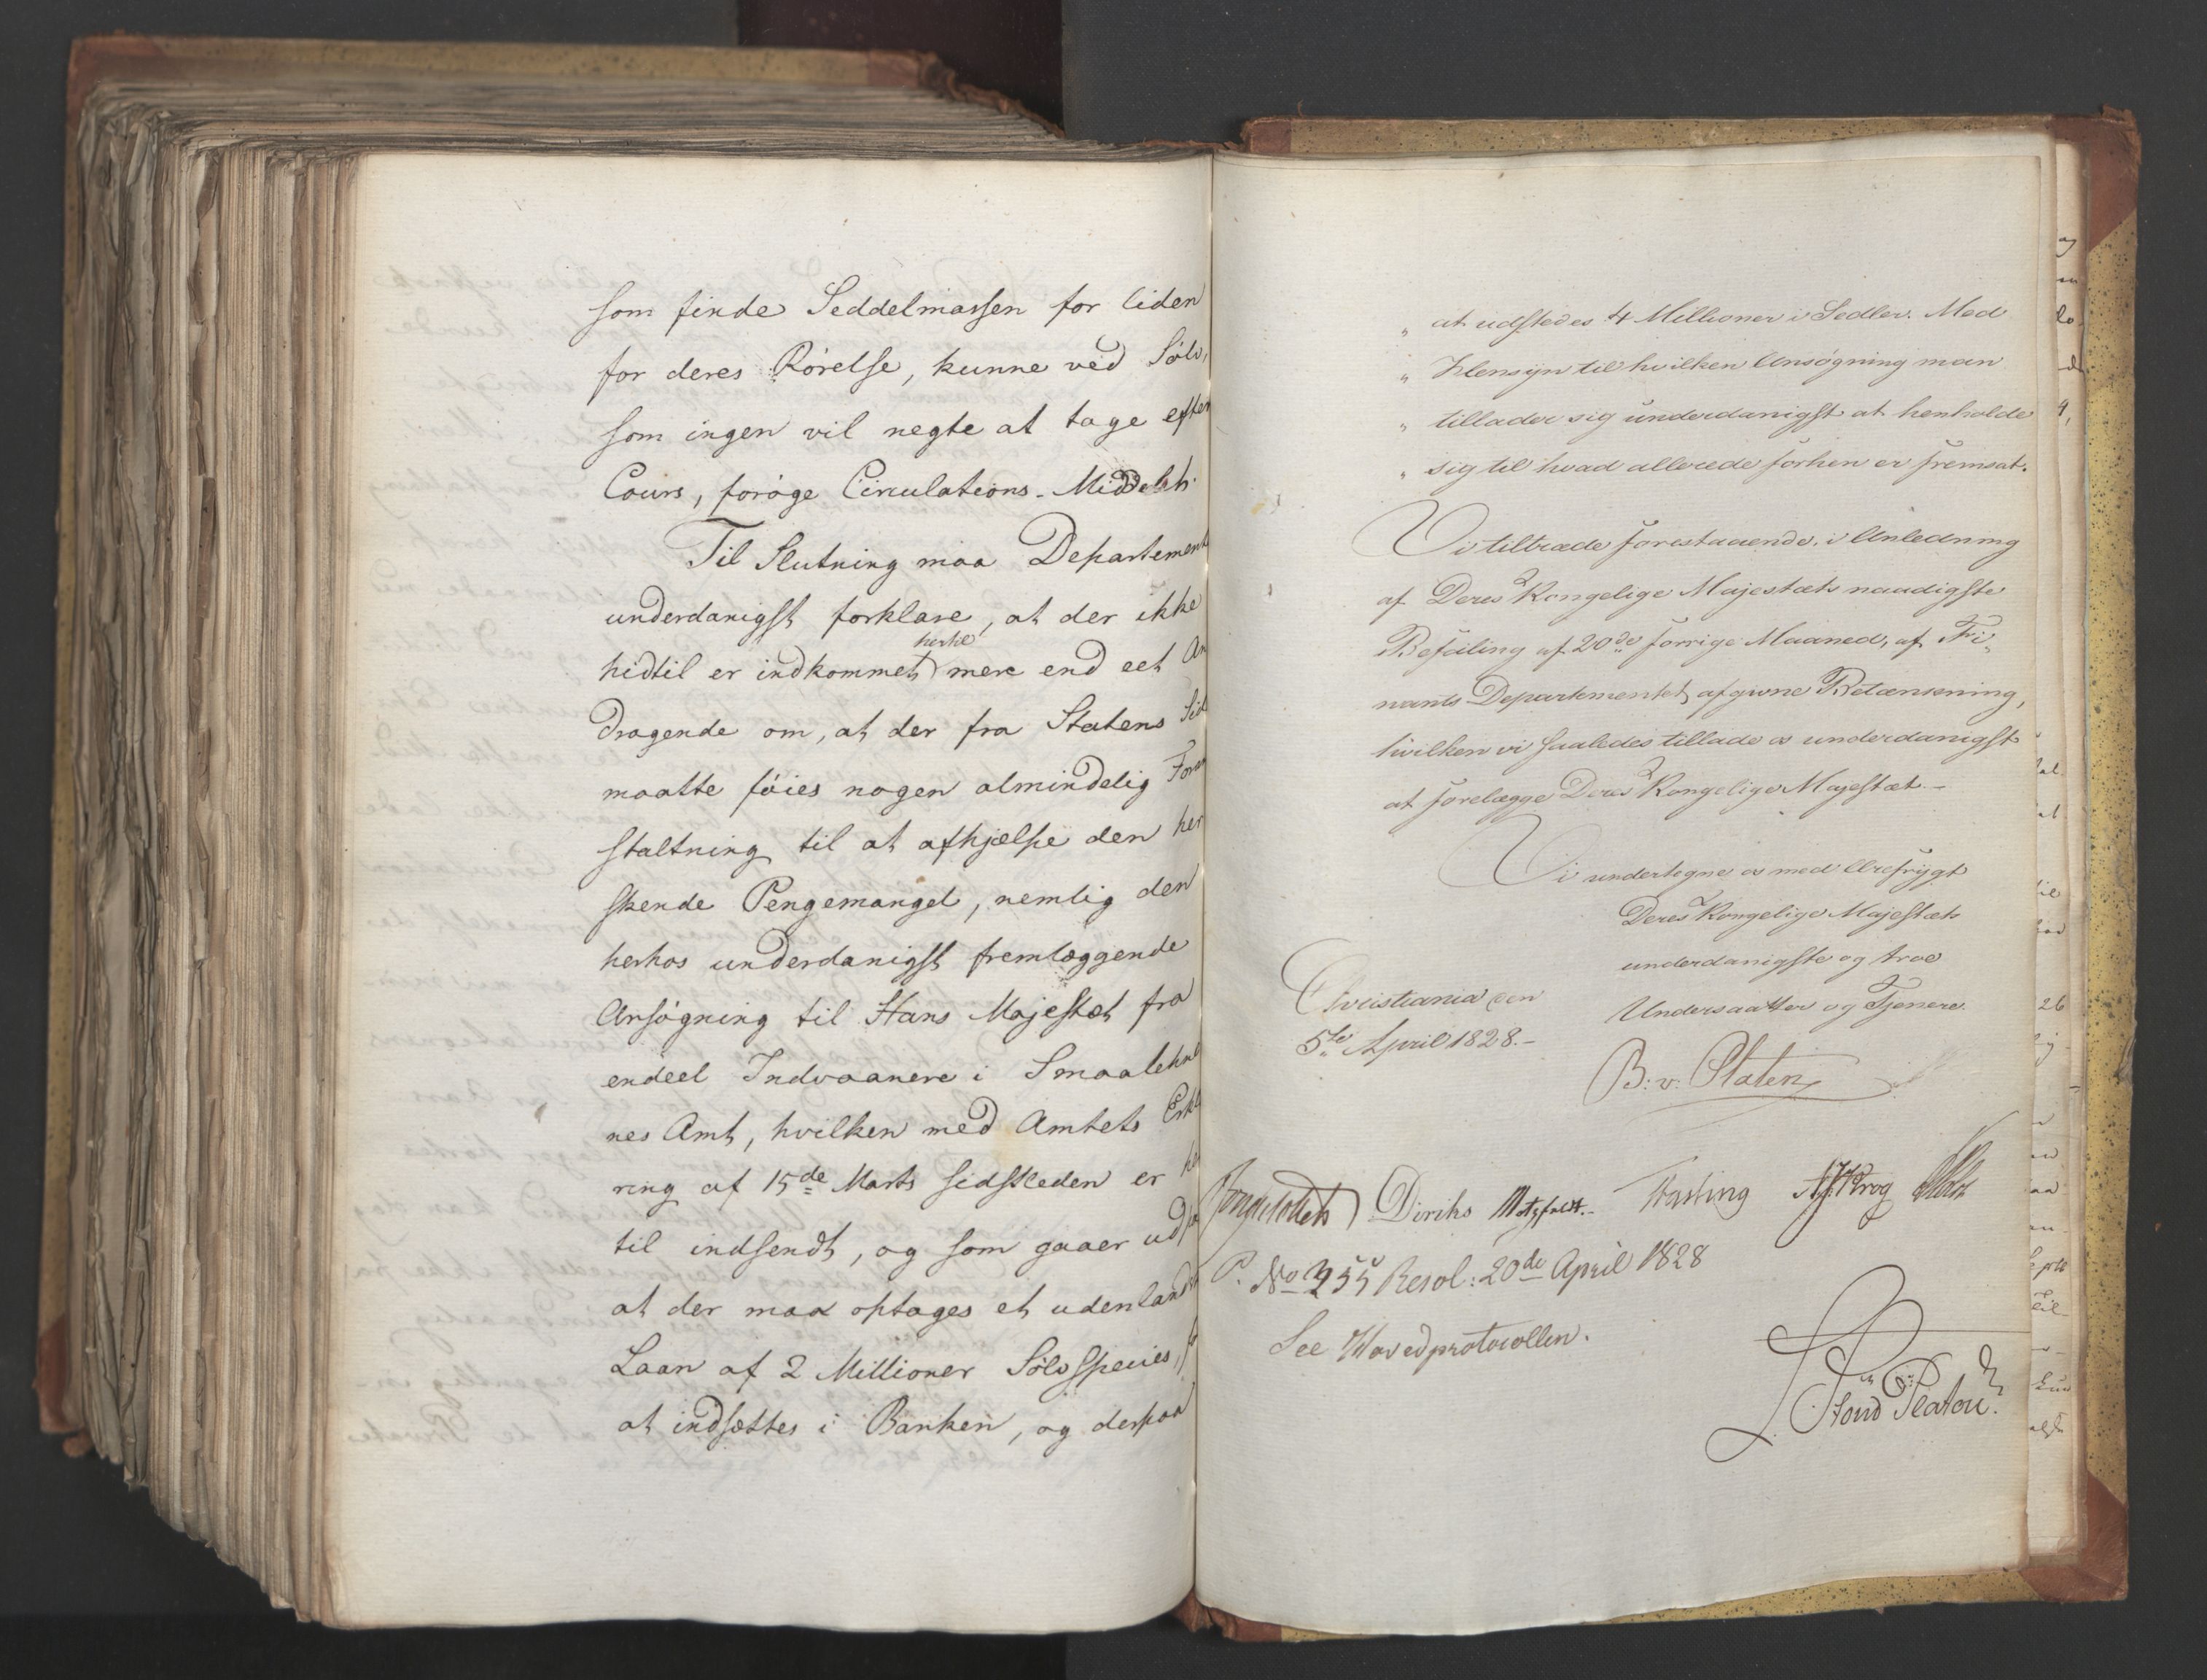 som finde Seddelmassen for liden
for deres Rørelse, kunne ved Sølv,
som ingen vil negte at tage efter
Cours, forøge Circulations-Middelet.
Til Slutning maa Departement
underdanigst forklare, at der ikke
hertil
hidtil er indkommet mere end eet An
dragende om, at der fra Statens Sid
maatte føies nogen almindelig Foran
staltning til at afhjelpe den her
skende Pengemangel, nemlig den
herhos underdanigst fremlæggende
Ansøgning til Hans Majestæt fra
endeel Indvaanere i Smaalehne
nes Amt, hvilken med Amtets Erklæ
ring af 15de Marts sidstleden er her
til indsendt, og som gaaer ud paa
at der maa optages et udenlandsk
Laan af 2 Millioner Sølvspecies, for
at indsættes i Banken, og derpaa
„ at udstedes 4 Millioner i Sedler. Med
„ Hensyn til hvilken Ansøgning man
„ tillader sig underdanigst at henholde
„ sig til hvad allerede forhen er fremsat.
Vi tiltræde forestaaende, i Anledning
af Deres Kongelige Majestæts naadigste
Befaling af 20de forrige Maaned, af Fi-
nants Departementet afgivne Betænkning,
hvilken vi saaledes tillade os underdanigst
at forelægge Deres Kongelige Majestæt.-
Vi undertegne os med Ærefrygt
Deres Kongelige Majestæts
underdanigste og troe
Undersaatter og Tjenere.
Christiania den
5te April 1828.-
B: v: Platen
Diriks Motzfeldt.- Fasting Krog
P. No 255 Resol: 20de April 1828
See Hovedprotocollen.
Stoud Platou